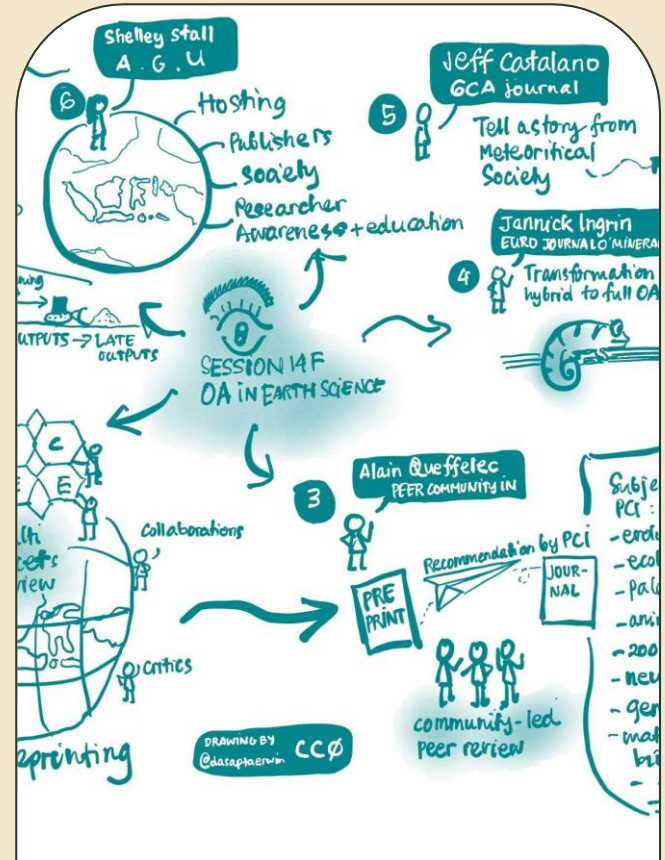 Shelley Stall
A.G.U
6
Hosting
Publishers
Society
Researcher
Awareness + education
5
Jeff Catalano
GCA journal
Tell a story from
Meteoritical
Society
Jannick Ingrin
EURO JOURNAL O' MINERA
4
Transformation
hybrid to full OA
UTPUTS → LATE
OUTPUTS
SESSION 14 F
OA IN EARTH SCIENCE
C
E
E
view
Collaborations
Critics
eprinting
3
Alain Queffelec
PEER COMMUNITY IN
PRE
PRINT
Recommendation by PCI
JOUR-
NAL
community-led
peer review
Subje
PCI:
- evolu
- ecol
- Pal
- ani
- zoo
- neu
- gen
- mat
DRAWING BY
@dasaptaerwin
CCØ